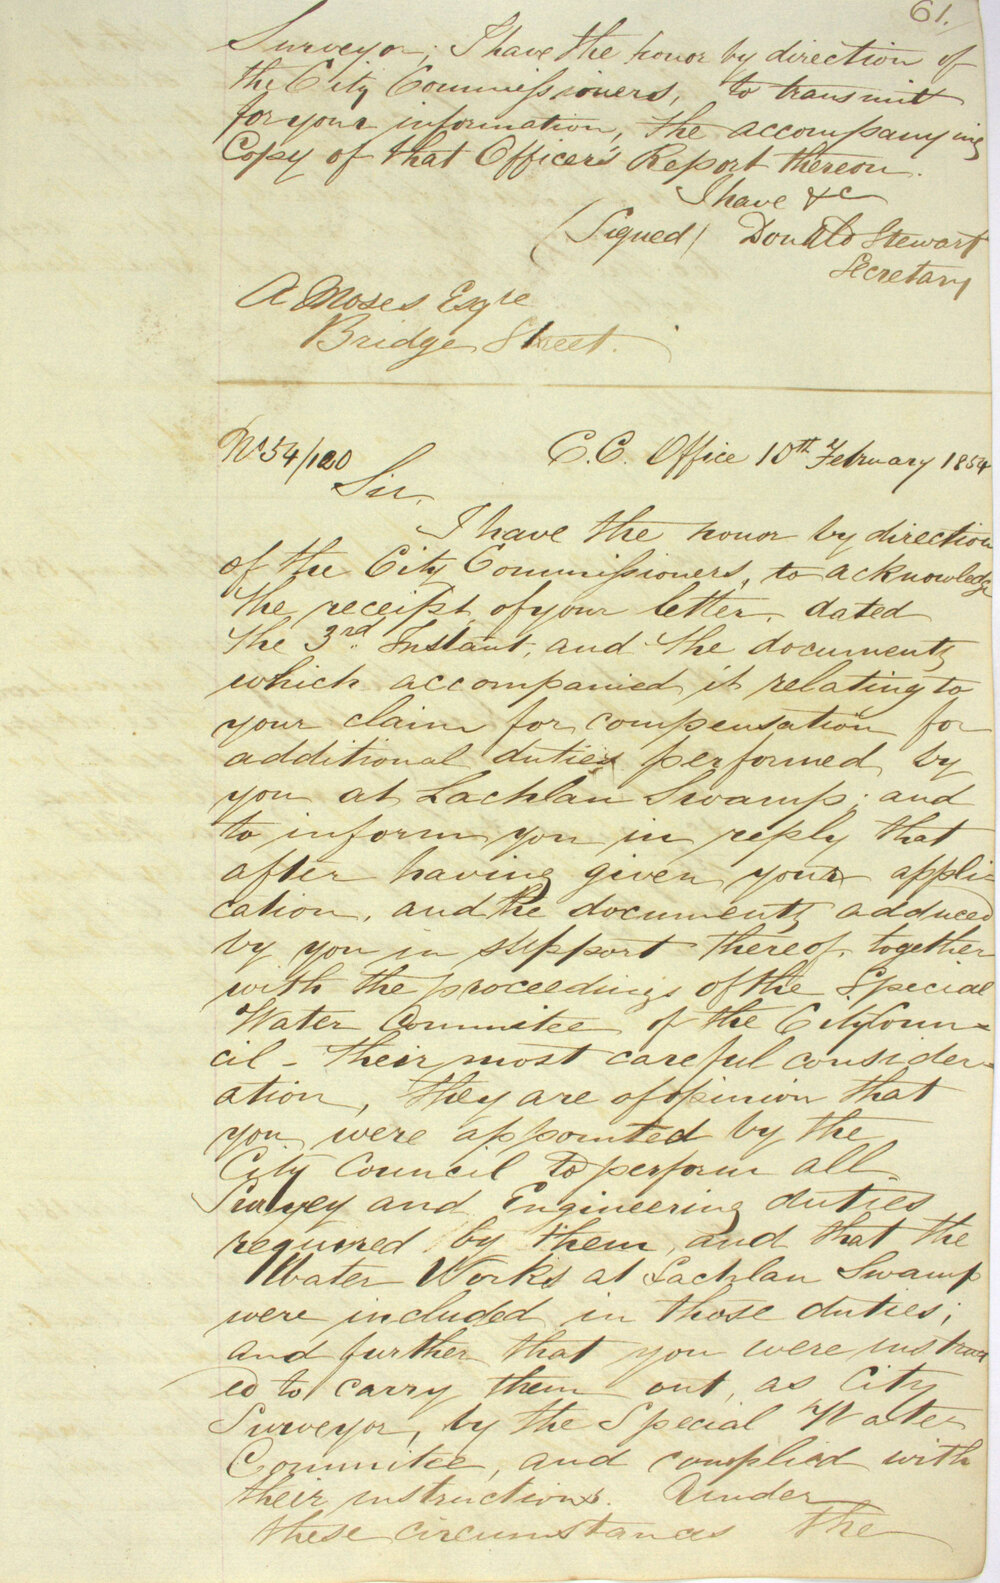 61.
Surveyor; I have the honor by direction of
the City Commissioners, to transmit
for your information, the accompanying
Copy of that Officer's Report thereon.
I have &c
(Signed) Donald Stewart
Secretary
A Moses Esqre
Bridge Street.
No 54/120 C.C. Office 10th February 1854
Sir,
I have the honor by direction
of the City Commissioners, to acknowledge
the receipt of your letter, dated
the 3rd. Instant, and the documents
which accompanied it relating to
your claim for compensation for
additional duties performed by
you at Lachlan Swamp; and
to inform you in reply that
after having given your appli-
cation, and the documents adduced
by you in support thereof, together
with the proceedings of the Special
Water Committee of the City Coun=
cil - their most careful consider=
ation, they are of opinion that
you were appointed by the
City Council to perform all
Survey and Engineering duties
required by them, and that the
Water Works at Lachlan Swamp
were included in those duties;
and further that you were instruct
ed to carry them out, as City
Surveyor, by the Special Water
Committee, and complied with
their instructions. Under
these circumstances the